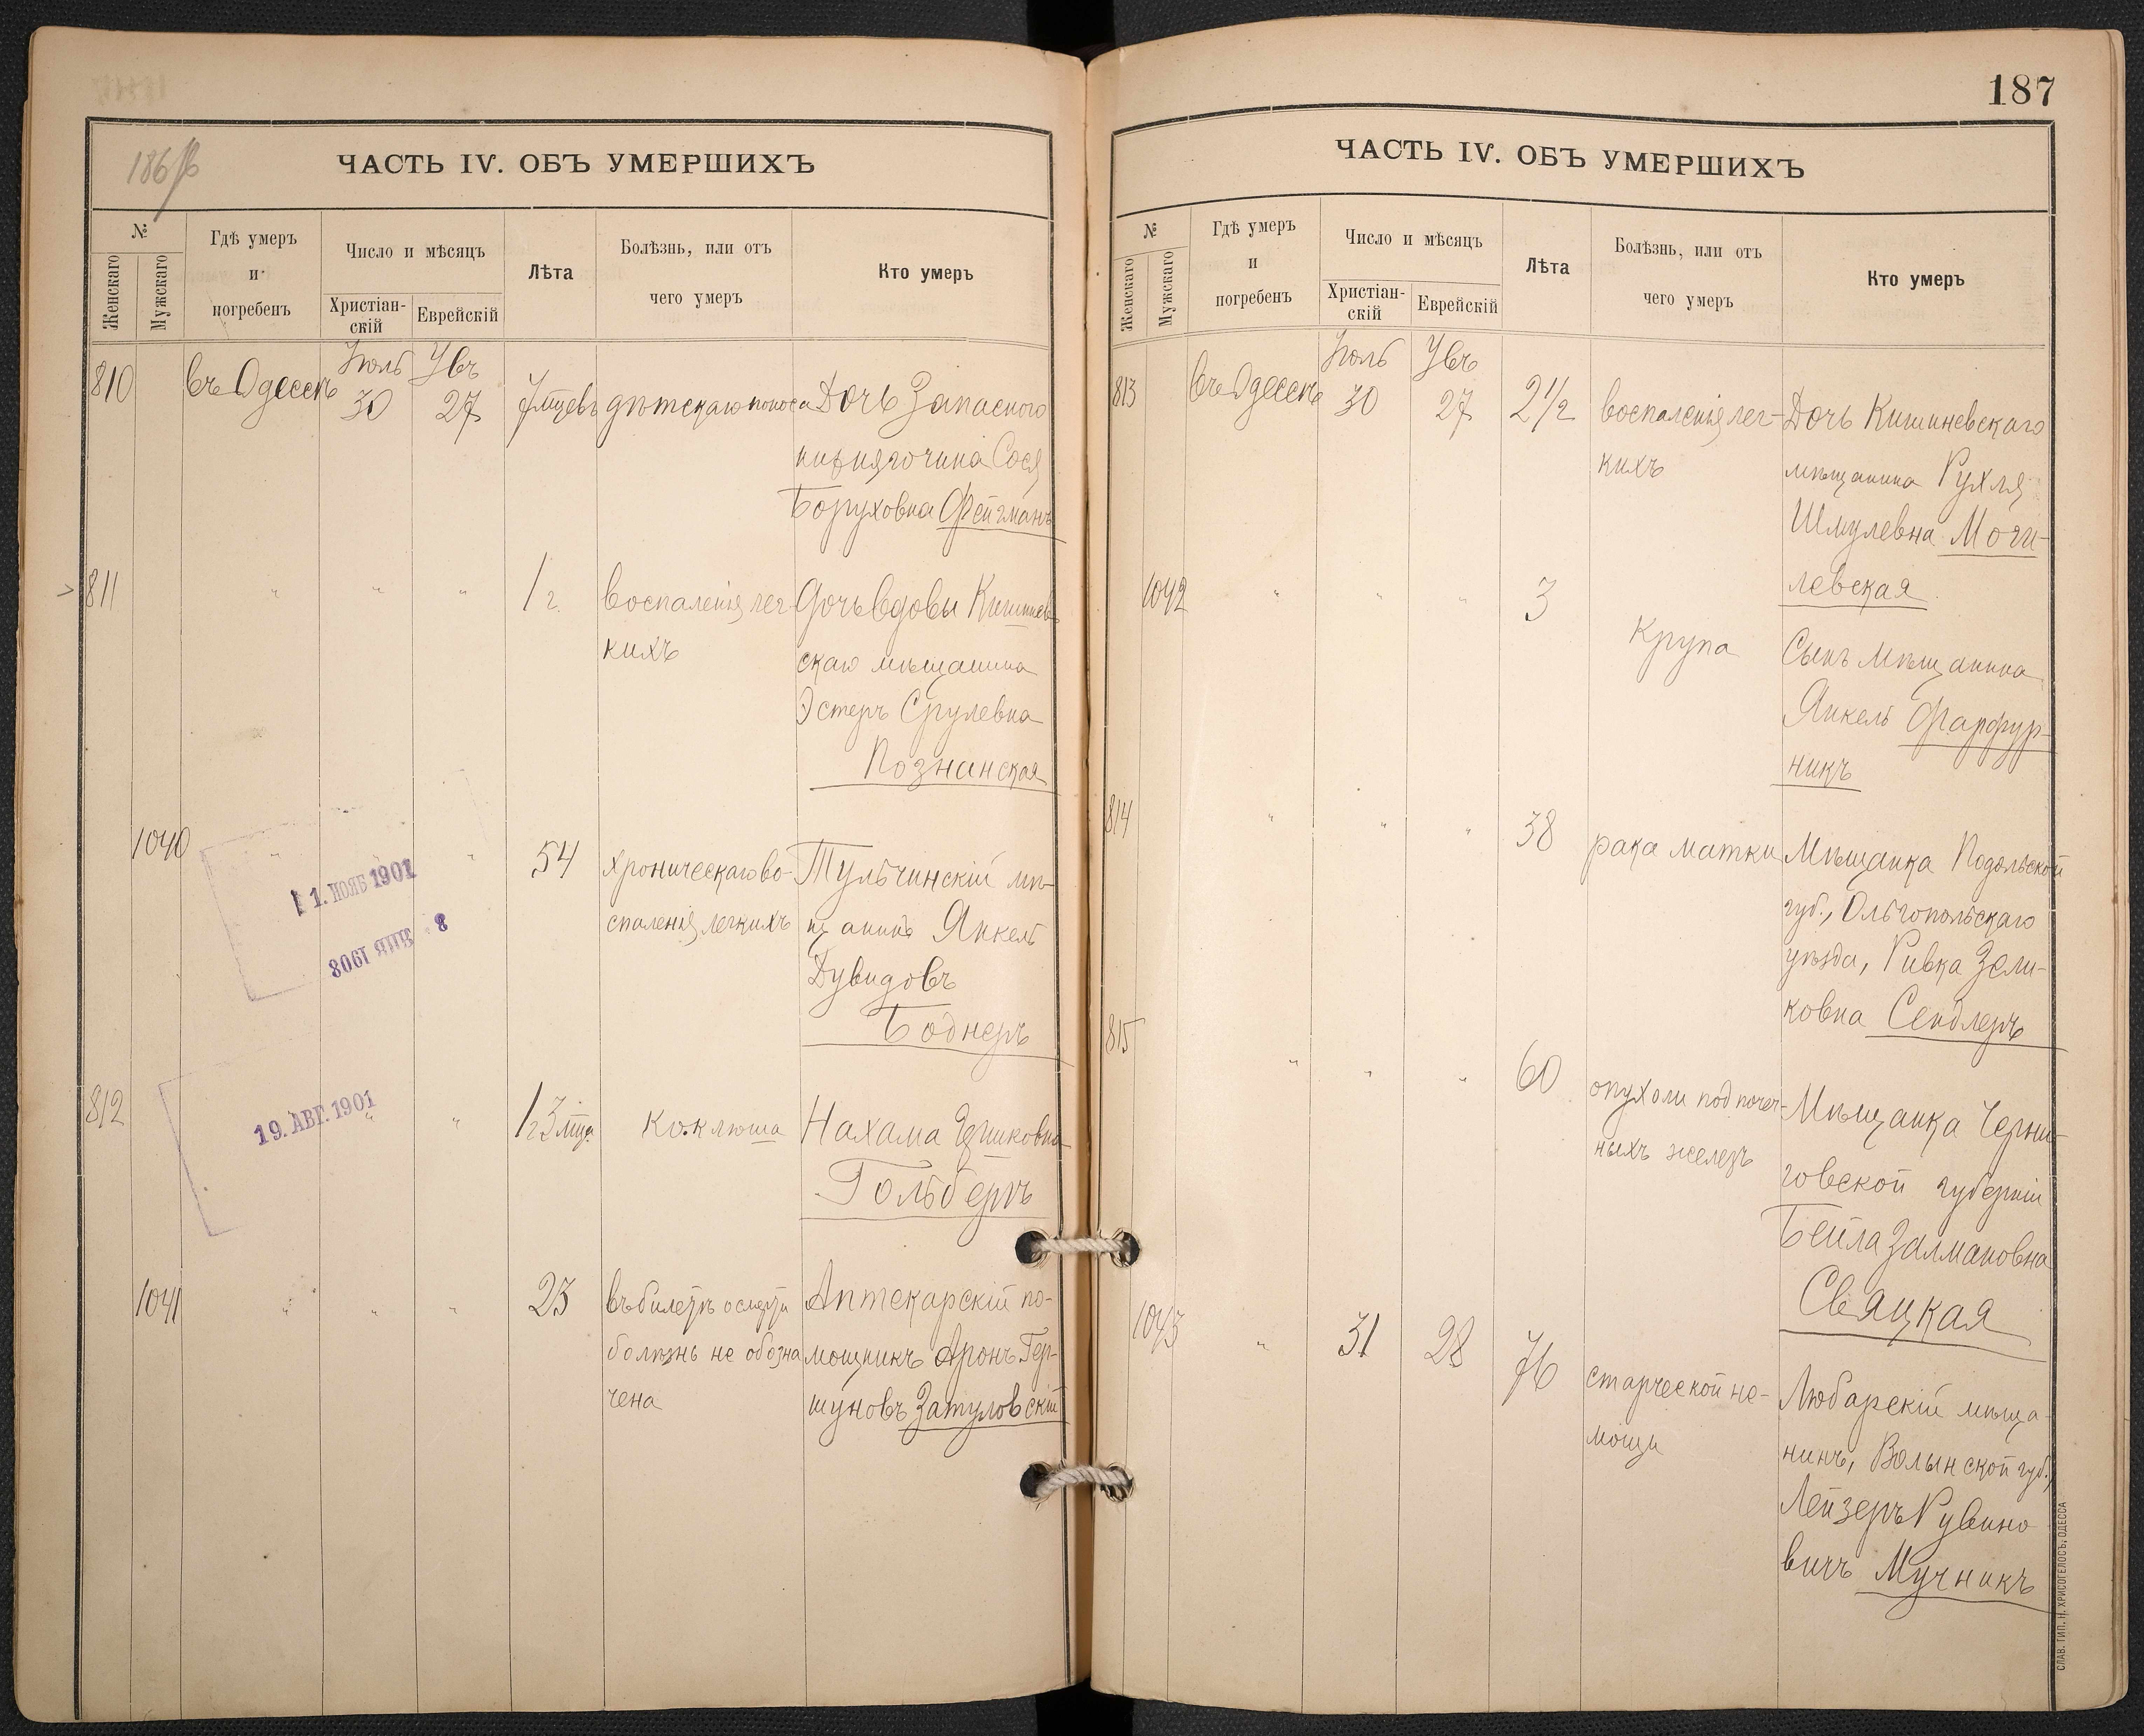 186
ЧАСТЬ IV. ОБЪ УМЕРШИХЪ
№
Женскаго
Мужскаго
Гдѣ умеръ
и
погребенъ
Число и мѣсяцъ
Христіан-
скій
Еврейскій
Лѣта
Болѣзнь, или отъ
чего умеръ
Кто умеръ
810
въ Одессѣ
Іюль
30
Увъ
27
7 мцевъ
дѣтскаго поноса
Дочь Запаснаго
Сося
Боруховна Фейгманъ
811
"
"
"
1 г.
воспаленія лег-
кихъ
Дочь вдовы Кишинев-
скаго мѣщанина
Эстеръ Срулевна
Познанская
1040
"
"
"
54
хроническаго во-
спаленія легкихъ
Тульчинскій мѣ-
щанинъ Янкель
Дувидовъ
Боднеръ
11. НОЯБ 1901
8 ЯНВ 1908
812
"
"
1 г 3 мца
коклюша
Нахама Ицковна
Гольберъ
19. АВГ. 1901
1041
"
"
"
23
въ билетѣ о смерти
болѣзнь не обозна
чена
Аптекарскій по-
мощникъ Аронъ Гер-
шуновъ Затуловскій
187
ЧАСТЬ IV. ОБЪ УМЕРШИХЪ
№
Женскаго
Мужскаго
Гдѣ умеръ
и
погребенъ
Число и мѣсяцъ
Христіан-
скій
Еврейскій
Лѣта
Болѣзнь, или отъ
чего умеръ
Кто умеръ
813
въ Одессѣ
Іюль
30
Увъ
27
2 1/2
воспаленія лег-
кихъ
Дочь Кишиневскаго
мѣщанина Рухля
Шмулевна Моги-
левская
1042
"
"
"
3
крупа
Сынъ мѣщанина
Янкель Фарфур-
никъ
814
"
"
"
38
рака матки
Мѣщанка Подольской
губ., Ольгопольскаго
уѣзда, Ривка Зели-
ковна Сендлеръ
815
"
"
"
60
опухоли подпочеч-
ныхъ железъ
Мѣщанка Черни-
говской губерніи
Бейла Залмановна
Свяцкая
1043
"
31
28
76
старческой не-
мощи
Любарскій мѣща-
нинъ, Волынской губ.,
Лейзеръ Рувино-
вичъ Мучникъ
СЛАВ. ТИП. Н. ХРИСОГЕЛОСЪ, ОДЕССА